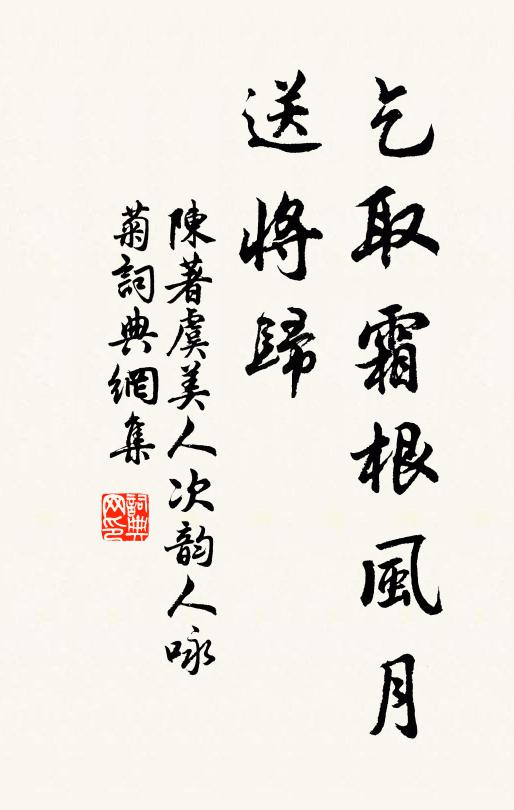 乞取霜根風月
送將歸
陳著虞美人次韵人咏
菊詞典網集
詞典网印